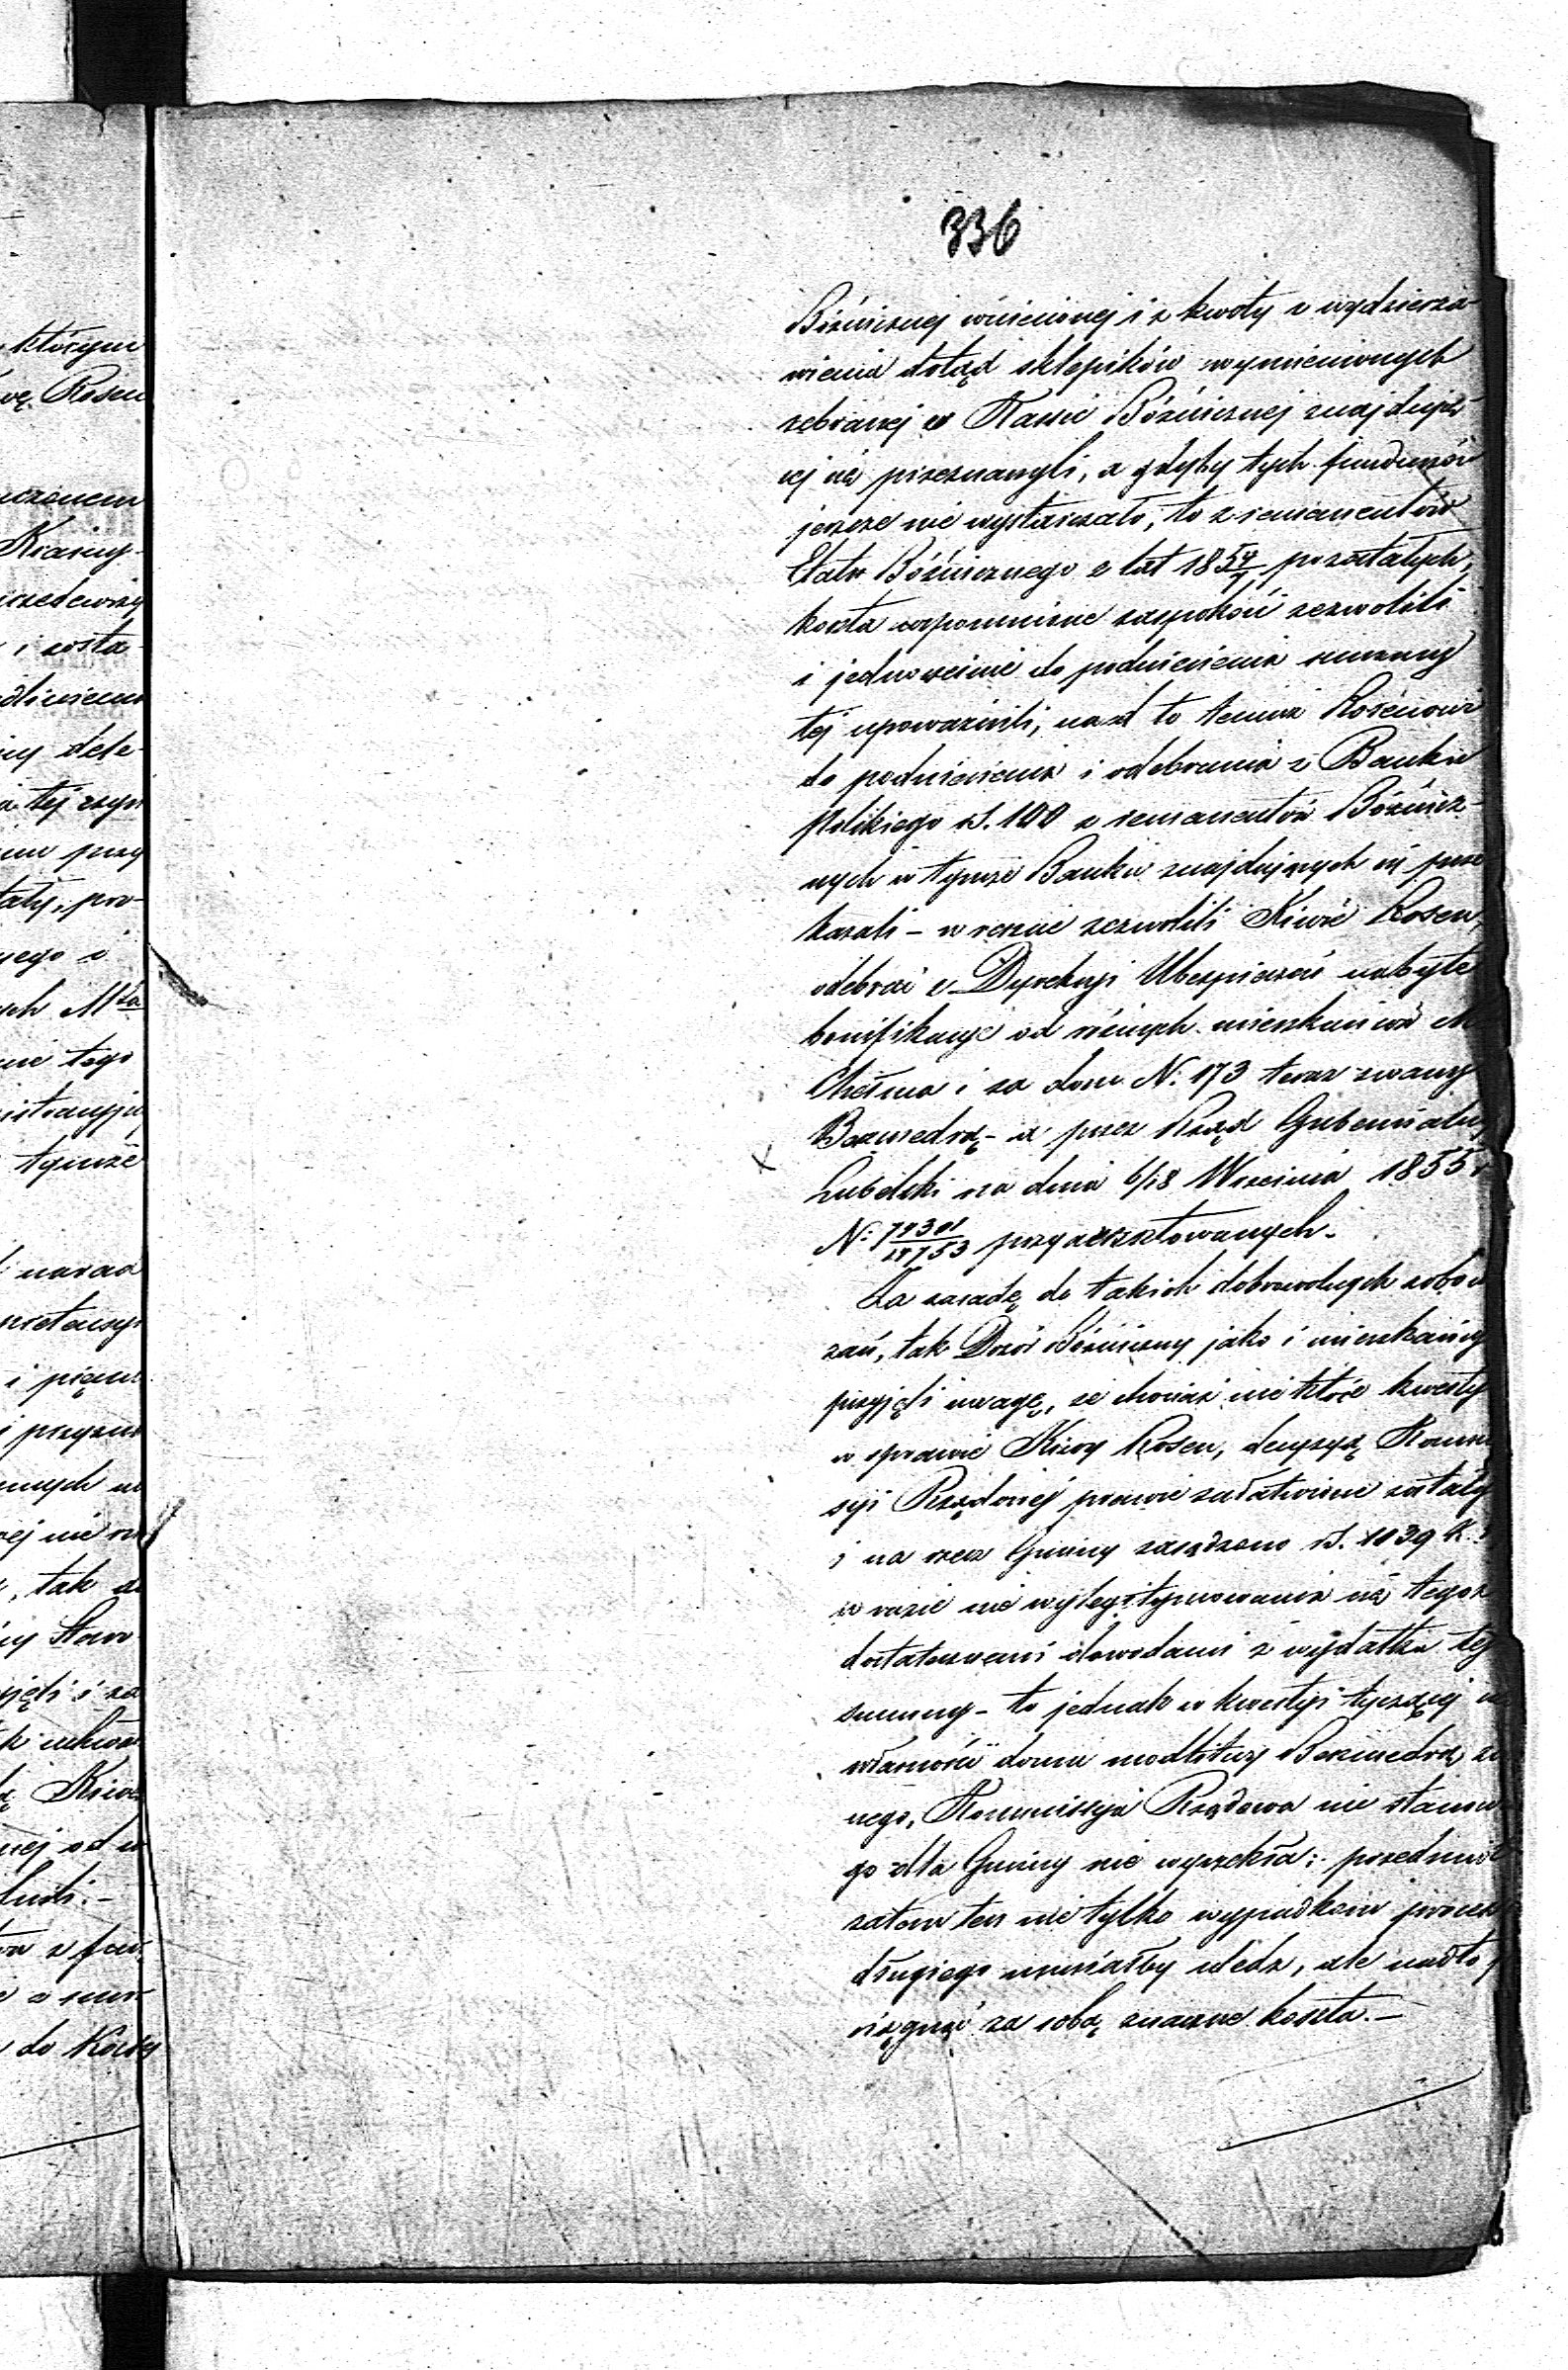 336
Bóżnicznej wniesionej i z kwoty z wydzierża-
wienia dotąd sklepików wymienionych
zebranej w Kassie Bóżnicznej znajdują-
cej się przeznaczyli, a gdyby tych funduszów
jeszcze nie wystarczało, to z remanentów
Etatu Bóżnicznego z lat 1854/ pozostałych,
koszta wspomnione zaspokoić zezwolili
i jednocześnie do podniesienia summy
tej upoważnili, nad to temuż Rosenowi
do podniesienia i odebrania z Banku
Polskiego rs. 100 z remanentów Bóżnicz-
nych w tymże Banku znajdujących się prze
kazali – w reszcie zezwolili Kiwie Rosen,
odebrać z Dyrekcyi Ubezpieczeń nabyte
bonifikacye od różnych mieszkańców M
Chełma i za dom N: 173 teraz zwany
Bezmedrą – a przez Rząd Gubernialny
Lubelski na dniu 6/18 Września 1855 r
N: 79301/17753 przyaresztowanych.
Za zasadę do takich dobrowolnych zobow
zań, tak Dozór Bóżniczny jako i mieszkańcy
przyjęli uwagę, że chociaż nie które kwesty
w sprawie Kiwy Rosen, decyzyą Kommi
syi Rządowej prawie załatwione zostały
i na rzecz Gminy zasądzono rs. 1039 k.
w razie nie wylegitymowania się tegoż
dostatecznemi dowodami z wydatku tej
summy – to jednak w kwestyi tyczącej
własności domu modlitwy Bezmedrą zwa
nego, Kommissya Rządowa nie stanow
go dla Gminy nie wyrzekła; przedmiot
zatem ten nie tylko wypadkom proces
długiego musiałby uledz, ale nadto
ciągnąć za sobą znaczne koszta. –
którym
wę Rosen
czenem
i zosta
dele-
tej
przy
taty, pro-
nego i
ych
nie tego
tymże
narad
i
tak
Kiwa
do